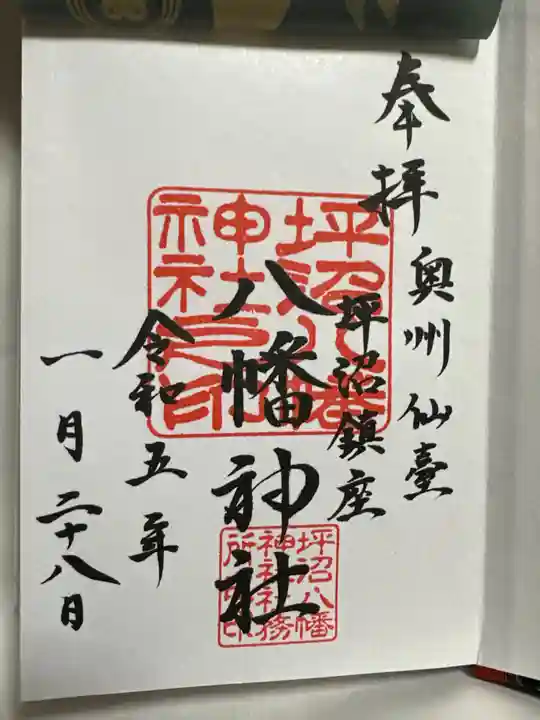 奉拝
奥州仙臺
坪沼鎮座
八幡神社
令和五年
一月二十八日
坪沼八幡
神社
神社之印
坪沼八幡
神社社務
所之印